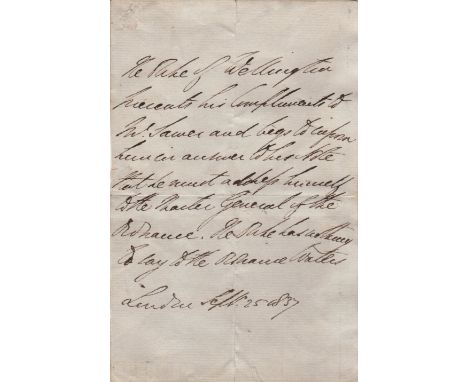 The Duke of Wellington
presents his Compliments to
Mr. Sawer and begs to inform
him in answer to his Note
that he must address himself
to the Master General of the
Ordnance. The Duke has nothing
to say to the Ordnance
London Sept. 25 1837